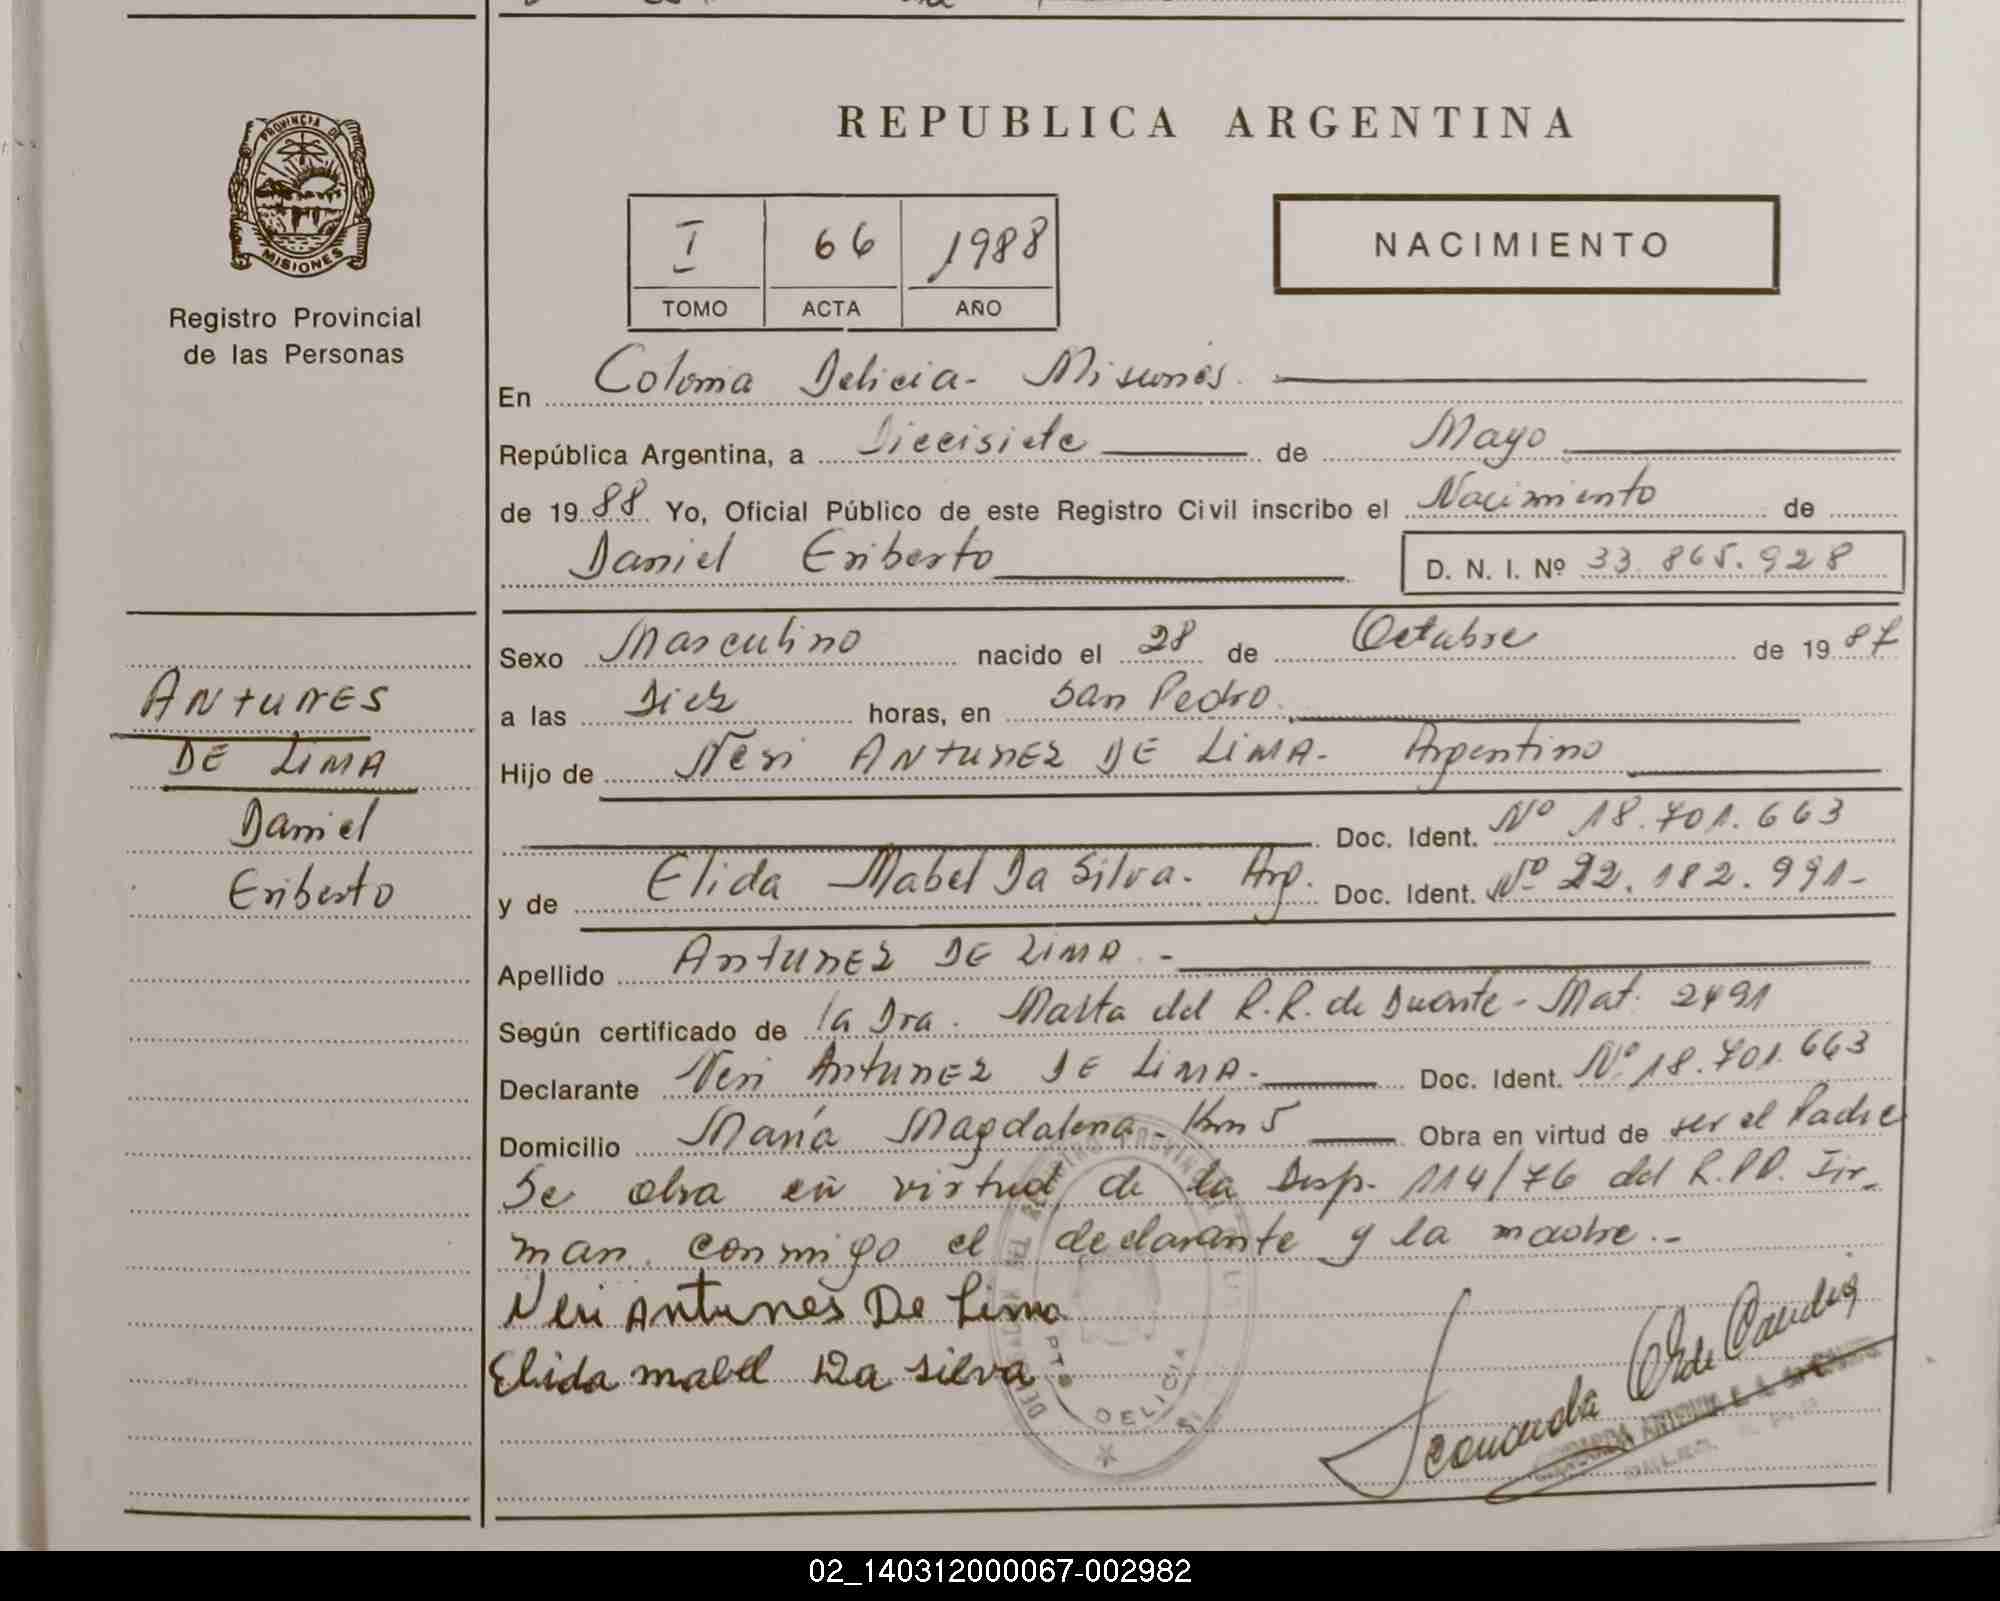 PROVINCIA DE
MISIONES
Registro Provincial
de las Personas
ANTUNES
DE LIMA
Daniel
Eriberto
REPUBLICA ARGENTINA
I 66 1988
TOMO ACTA AÑO
NACIMIENTO
En Colonia Delicia - Misiones.
República Argentina, a Diecisiete de Mayo
de 19 88 Yo, Oficial Público de este Registro Civil inscribo el Nacimiento de
Daniel Eriberto D. N. I. Nº 33.865.928
Sexo Masculino nacido el 28 de Octubre de 19 87
a las Diez horas, en San Pedro.
Hijo de Neri ANTUNEZ DE LIMA - Argentino
Doc. Ident. Nº 18.701.663
y de Elida Mabel Da Silva - Arg. Doc. Ident. Nº 22.182.991-
Apellido ANTUNEZ DE LIMA . -
Según certificado de la Dra. Marta del R.R. de Duarte - Mat. 2491
Declarante Neri ANTUNEZ DE LIMA - Doc. Ident. Nº 18.701.663
Domicilio María Magdalena - Km 5 Obra en virtud de ser el Padre
Se obra en virtud de la Disp. 114/76 del R.P.P. Fir-
man conmigo el declarante y la madre.-
Neri Antunes De Lima
Elida mabel Da silva
DELICIA
02_140312000067-002982